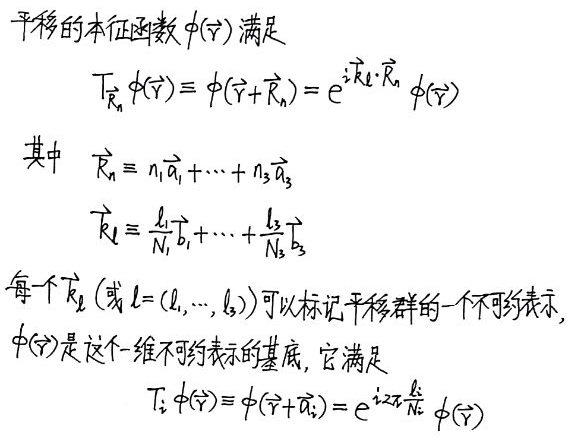 平移的本征函数 φ(r⃗) 满足
T_{R⃗ₙ} φ(r⃗) ≡ φ(r⃗+R⃗ₙ) = e^{i k⃗_l·R⃗ₙ} φ(r⃗)
其中 R⃗ₙ ≡ n₁a⃗₁+⋯+n₃a⃗₃
k⃗_l ≡ \frac{l₁}{N₁}b⃗₁+⋯+\frac{l₃}{N₃}b⃗₃
每一个 k⃗_l (或 l=(l₁,⋯,l₃)) 可以标记平移群的一个不可约表示,
φ(r⃗)是这个一维不可约表示的基底, 它满足
T_i φ(r⃗) ≡ φ(r⃗+a⃗_i) = e^{i2π\frac{l_i}{N_i}} φ(r⃗)